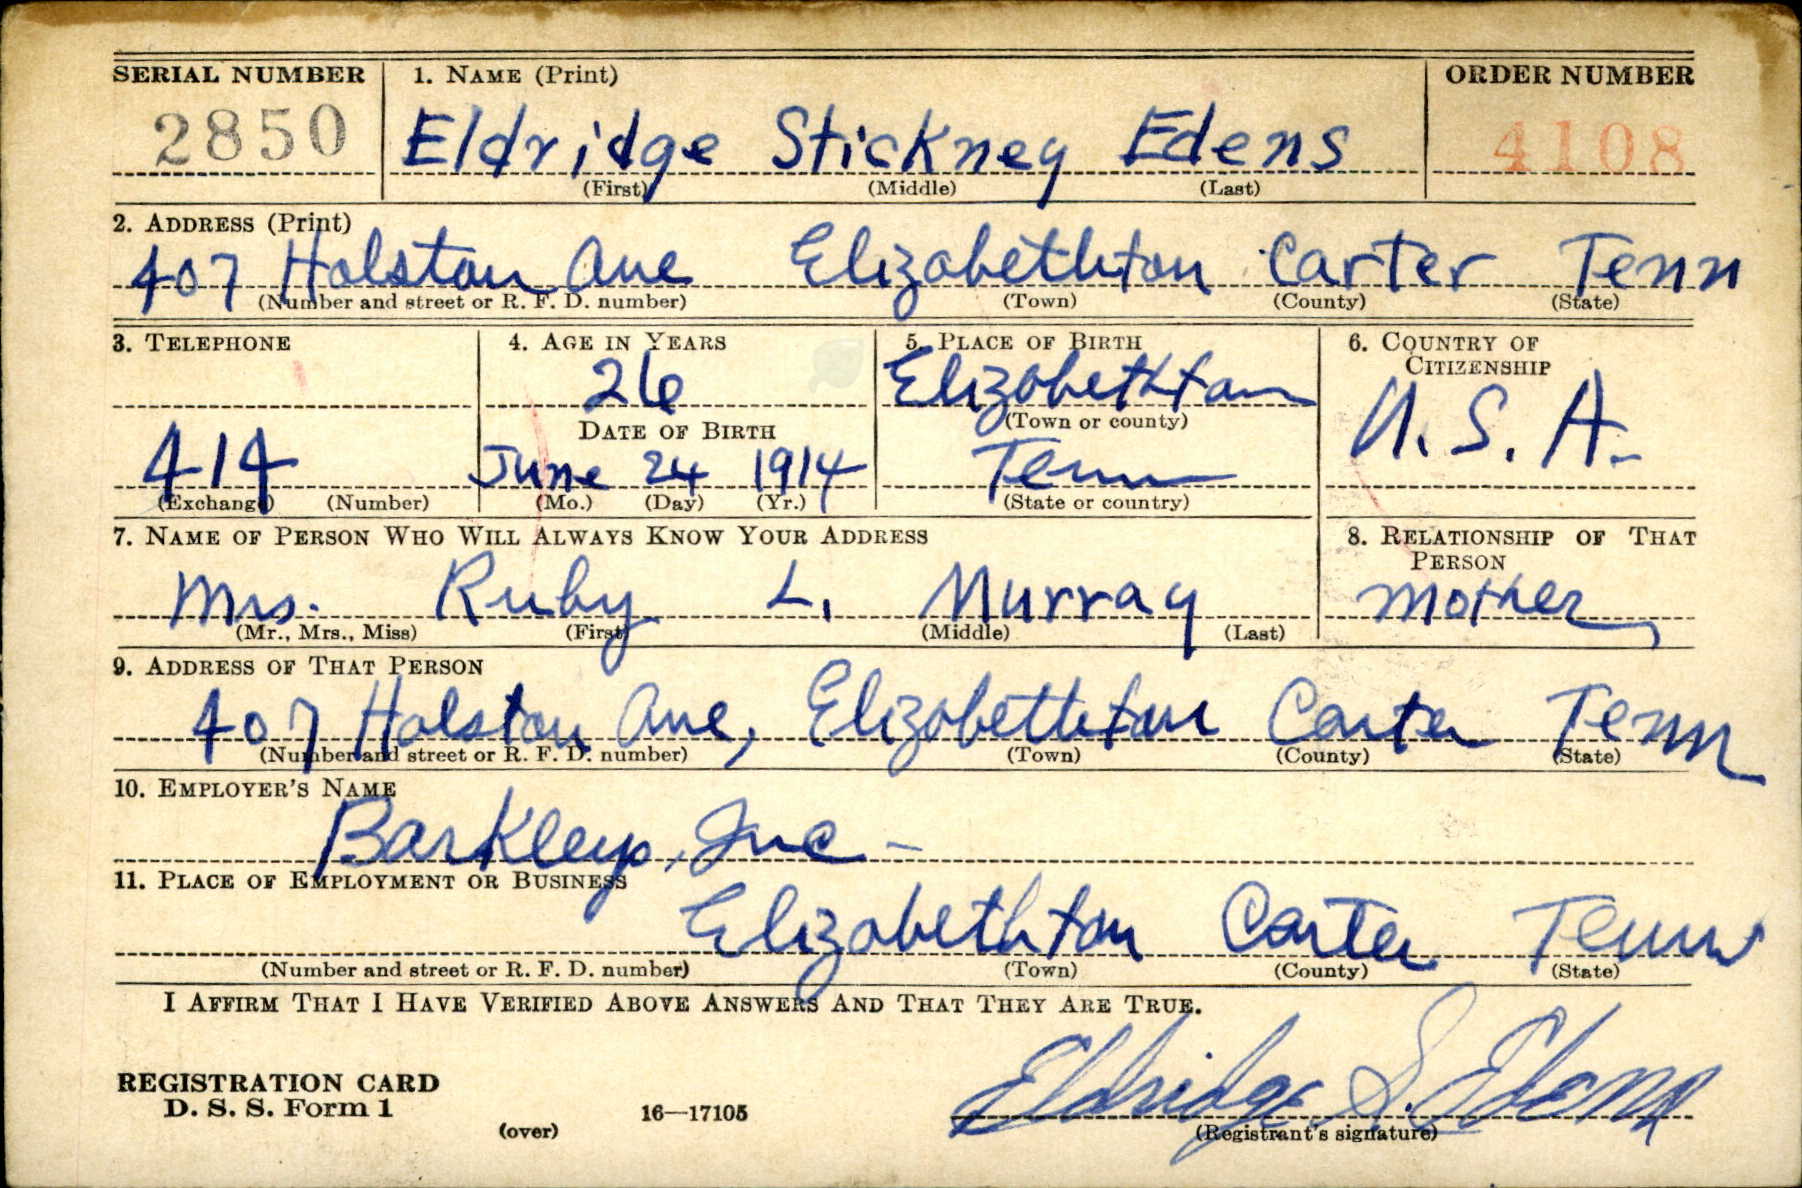 SERIAL NUMBER 1. NAME (Print) ORDER NUMBER
2850 Eldridge Stickney Edens 4108
(First) (Middle) (Last)
2. ADDRESS (Print)
407 Holston Ave Elizabethton Carter Tenn
(Number and street or R. F. D. number) (Town) (County) (State)
3. TELEPHONE 4. AGE IN YEARS 5. PLACE OF BIRTH 6. COUNTRY OF
CITIZENSHIP
26 Elizabethton U. S. A.
DATE OF BIRTH (Town or county)
414 June 24 1914 Tenn
(Exchange) (Number) (Mo.) (Day) (Yr.) (State or country)
7. NAME OF PERSON WHO WILL ALWAYS KNOW YOUR ADDRESS 8. RELATIONSHIP OF THAT
PERSON
Mrs. Ruby L. Murray Mother
(Mr., Mrs., Miss) (First) (Middle) (Last)
9. ADDRESS OF THAT PERSON
407 Holston Ave, Elizabethton Carter Tenn
(Number and street or R. F. D. number) (Town) (County) (State)
10. EMPLOYER'S NAME
Barkleys, Inc -
11. PLACE OF EMPLOYMENT OR BUSINESS
Elizabethton Carter Tenn
(Number and street or R. F. D. number) (Town) (County) (State)
I AFFIRM THAT I HAVE VERIFIED ABOVE ANSWERS AND THAT THEY ARE TRUE.
Eldridge S. Edens
REGISTRATION CARD
D. S. S. Form 1 16—17105
(over) (Registrant's signature)